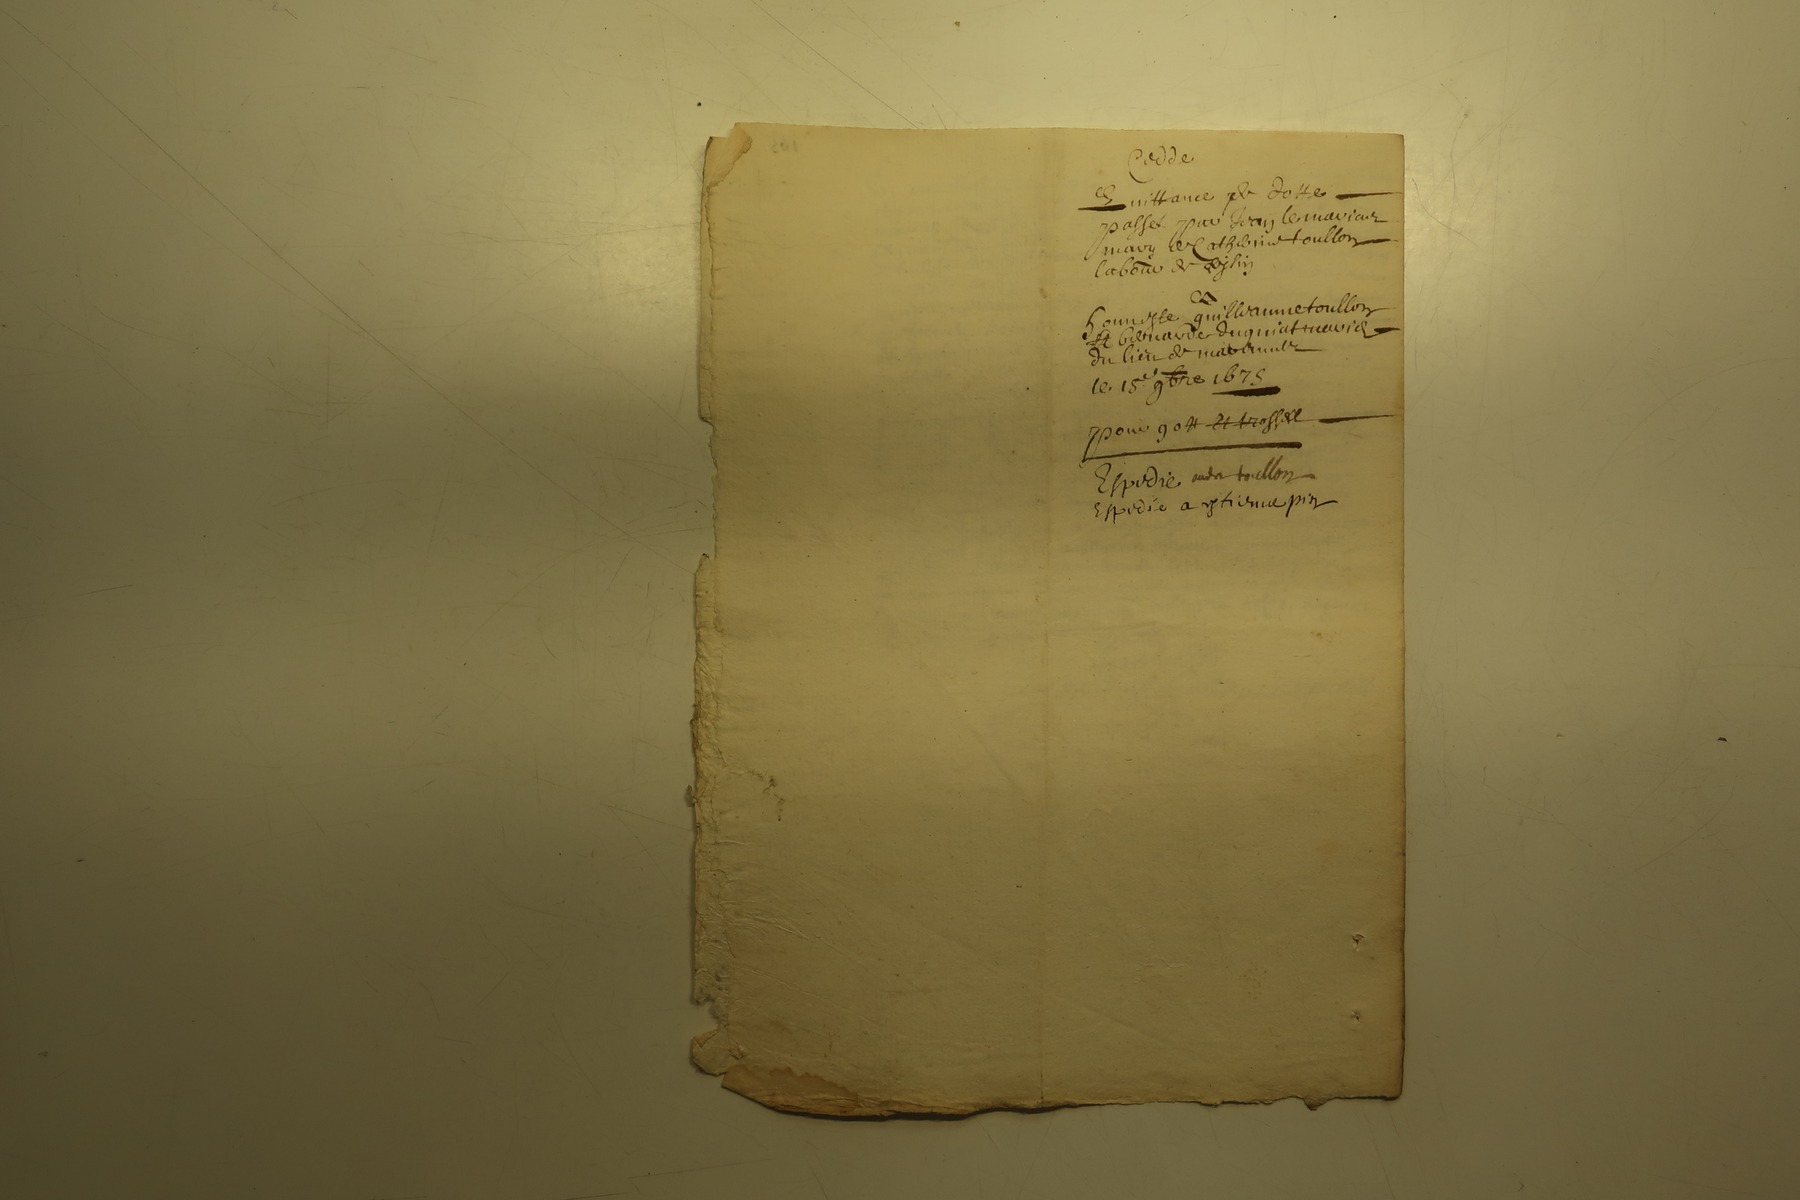 Cedde
Quittance de dotte
passee par Jean lemarier
mary de Catherine toullon
labour de
A
honneste guillaume toullon
Et bernarde duguiat mariés
du lieu de
le 15e 9bre 1675
pour 90 tt Et trossel
Espedie audit toullon
Espedie a estienne pin